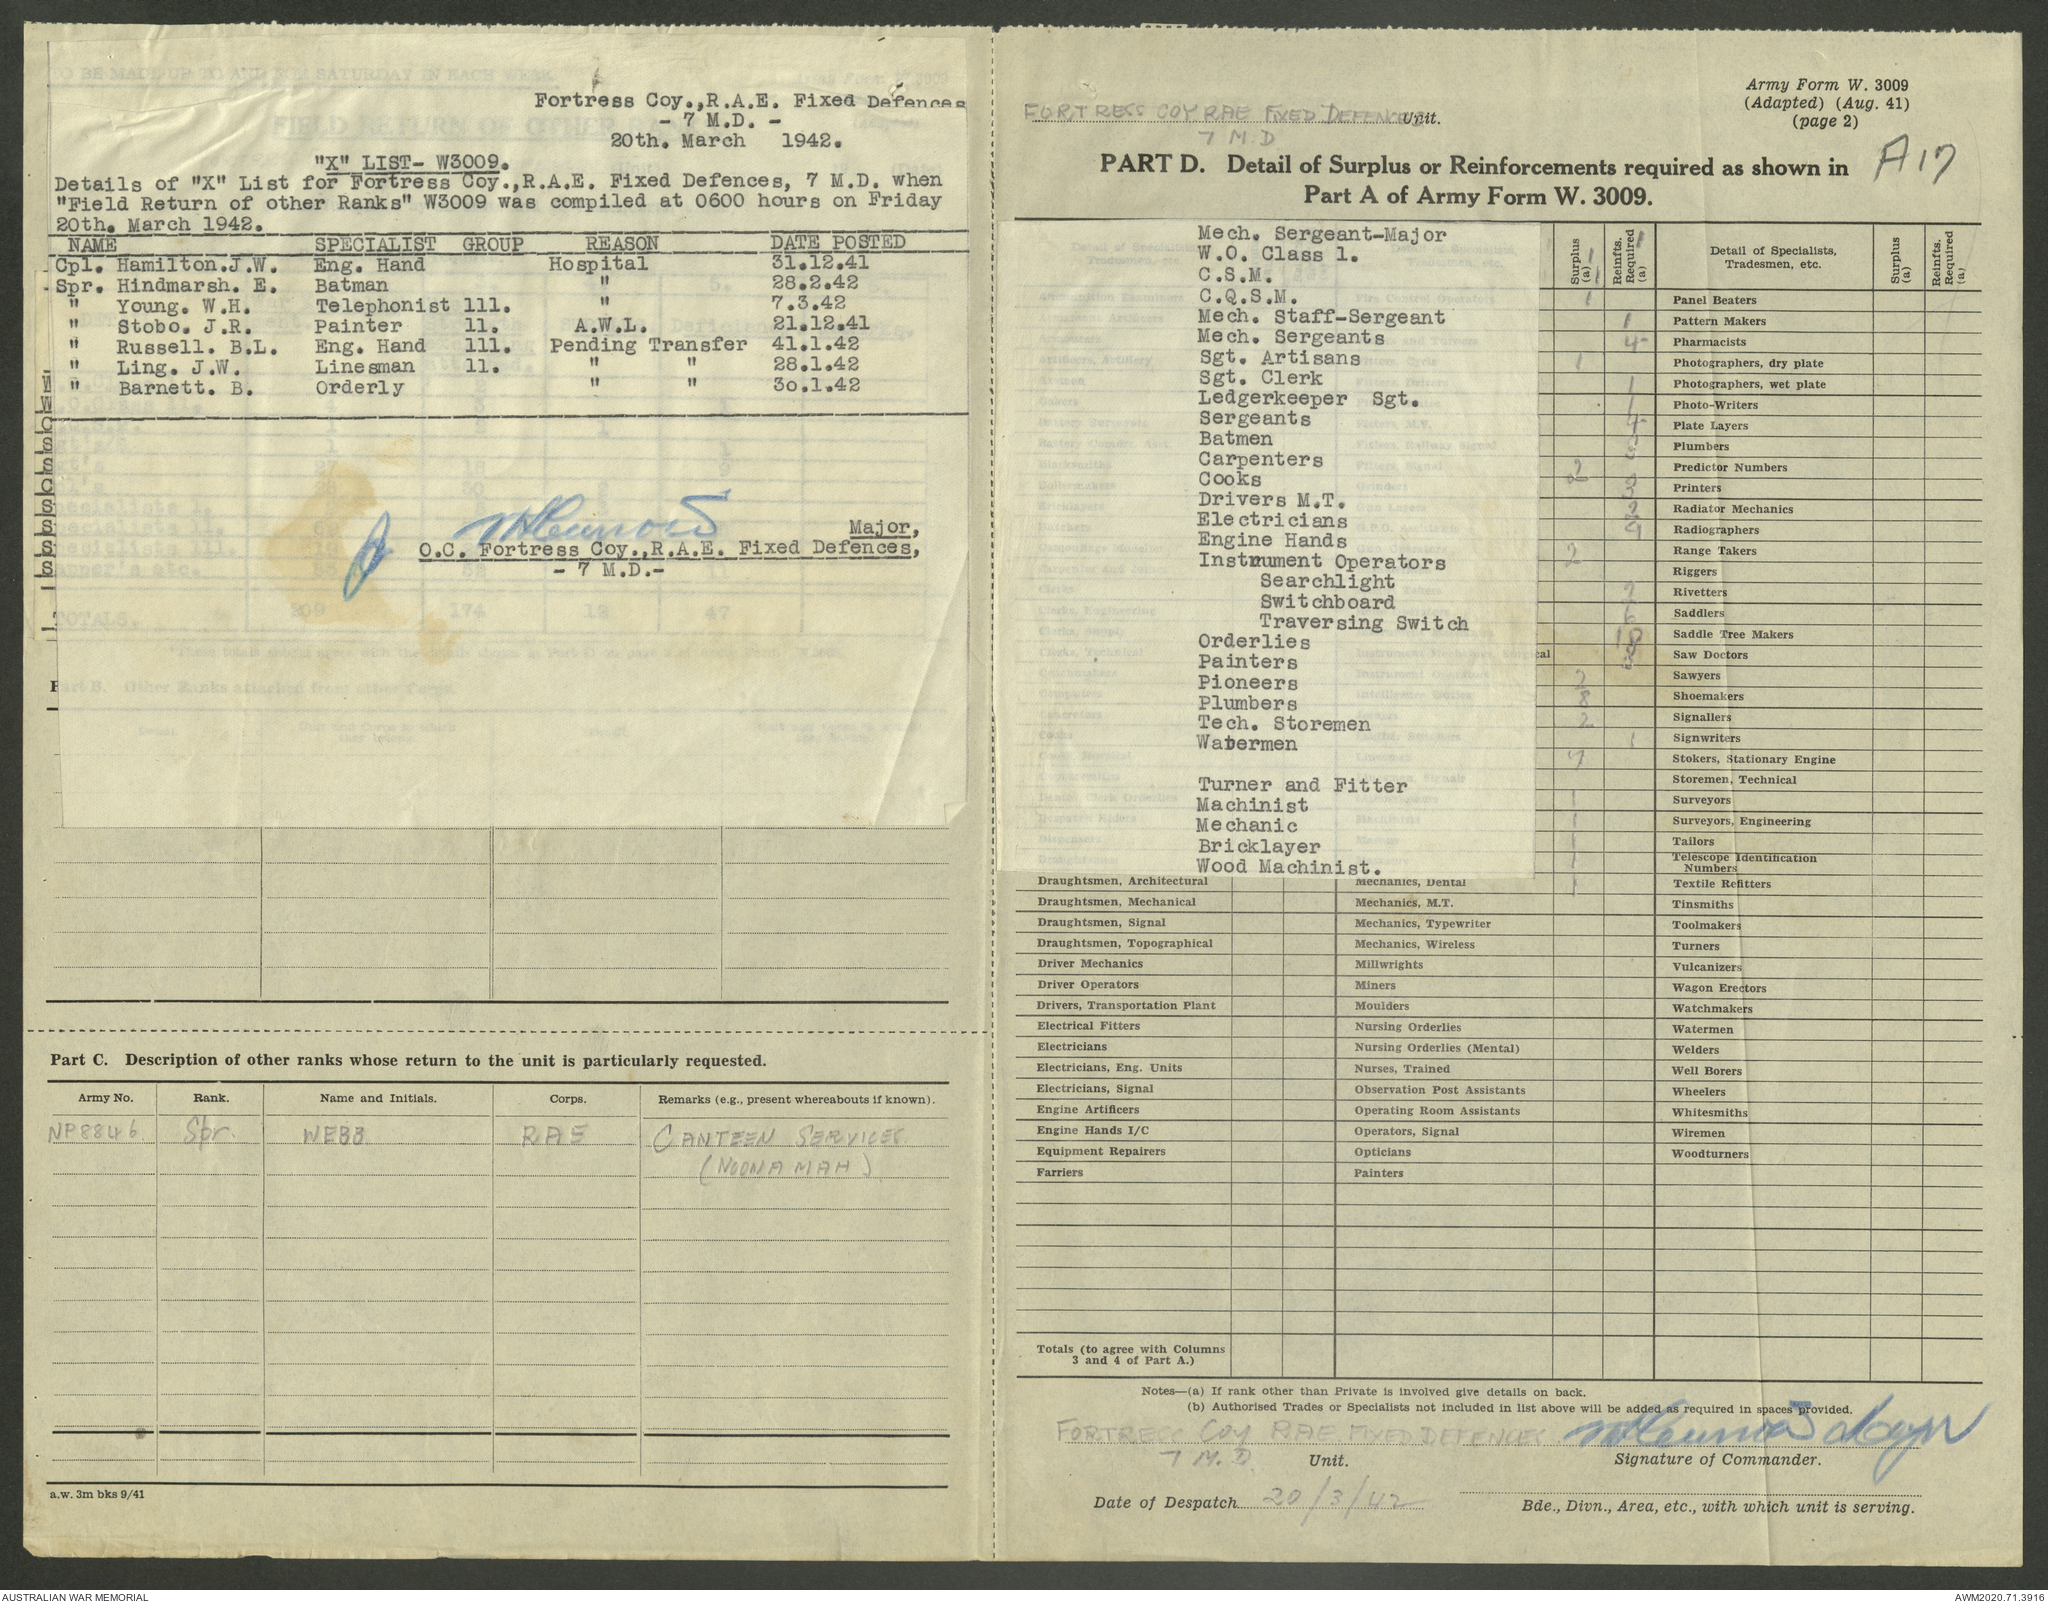 Fortress Coy.,R.A.E. Fixed Defences
- 7 M.D. -
20th. March 1942.
"X" LIST- W3009.
Details of "X" List for Fortress Coy.,R.A.E. Fixed Defences, 7 M.D. when
"Field Return of other Ranks" W3009 was compiled at 0600 hours on Friday
20th. March 1942.
NAME SPECIALIST GROUP REASON DATE POSTED
Cpl. Hamilton.J.W. Eng. Hand Hospital 31.12.41
Spr. Hindmarsh. E. Batman " 28.2.42
" Young. W.H. Telephonist 111. " 7.3.42
" Stobo. J.R. Painter 11. A.W.L. 21.12.41
" Russell. B.L. Eng. Hand 111. Pending Transfer 41.1.42
" Ling. J.W. Linesman 11. " " 28.1.42
" Barnett. B. Orderly " " 3o.1.42
Major,
O.C. Fortress Coy.,R.A.E. Fixed Defences,
- 7 M.D.-
TOTALS. 209 174 12 47
Part C. Description of other ranks whose return to the unit is particularly requested.
Army No. Rank. Name and Initials. Corps. Remarks (e.g., present whereabouts if known).
NP8846 Spr. WEBB RAE CANTEEN SERVICES
(NOONAMAH)
a.w. 3m bks 9/41
Army Form W. 3009
(Adapted) (Aug. 41)
(page 2)
FORTRESS COY RAE FIXED DEFENCES Unit.
7 M.D
A17
PART D. Detail of Surplus or Reinforcements required as shown in
Part A of Army Form W. 3009.
Surplus (a) Reinfts. Required (a) Detail of Specialists, Tradesmen, etc. Surplus (a) Reinfts. Required (a)
Mech. Sergeant-Major
W.O. Class 1.
C.S.M.
C.Q.S.M.
Mech. Staff-Sergeant
Mech. Sergeants
Sgt. Artisans
Sgt. Clerk
Ledgerkeeper Sgt.
Sergeants
Batmen
Carpenters
Cooks
Drivers M.T.
Electricians
Engine Hands
Instrument Operators
Searchlight
Switchboard
Traversing Switch
Orderlies
Painters
Pioneers
Plumbers
Tech. Storemen
Watermen
Turner and Fitter
Machinist
Mechanic
Bricklayer
Wood Machinist.
Panel Beaters
Pattern Makers
Pharmacists
Photographers, dry plate
Photographers, wet plate
Photo-Writers
Plate Layers
Plumbers
Predictor Numbers
Printers
Radiator Mechanics
Radiographers
Range Takers
Riggers
Rivetters
Saddlers
Saddle Tree Makers
Saw Doctors
Sawyers
Shoemakers
Signallers
Signwriters
Stokers, Stationary Engine
Storemen, Technical
Surveyors
Surveyors, Engineering
Tailors
Telescope Identification
Numbers
Draughtsmen, Architectural Mechanics, Dental Textile Refitters
Draughtsmen, Mechanical Mechanics, M.T. Tinsmiths
Draughtsmen, Signal Mechanics, Typewriter Toolmakers
Draughtsmen, Topographical Mechanics, Wireless Turners
Driver Mechanics Millwrights Vulcanizers
Driver Operators Miners Wagon Erectors
Drivers, Transportation Plant Moulders Watchmakers
Electrical Fitters Nursing Orderlies Watermen
Electricians Nursing Orderlies (Mental) Welders
Electricians, Eng. Units Nurses, Trained Well Borers
Electricians, Signal Observation Post Assistants Wheelers
Engine Artificers Operating Room Assistants Whitesmiths
Engine Hands I/C Operators, Signal Wiremen
Equipment Repairers Opticians Woodturners
Farriers Painters
Totals (to agree with Columns
3 and 4 of Part A.)
Notes—(a) If rank other than Private is involved give details on back.
(b) Authorised Trades or Specialists not included in list above will be added as required in spaces provided.
FORTRESS COY RAE FIXED DEFENCES Major
7 M.D. Unit. Signature of Commander.
Date of Despatch 20/3/42
Bde., Divn., Area, etc., with which unit is serving.
AUSTRALIAN WAR MEMORIAL AWM2020.71.3916